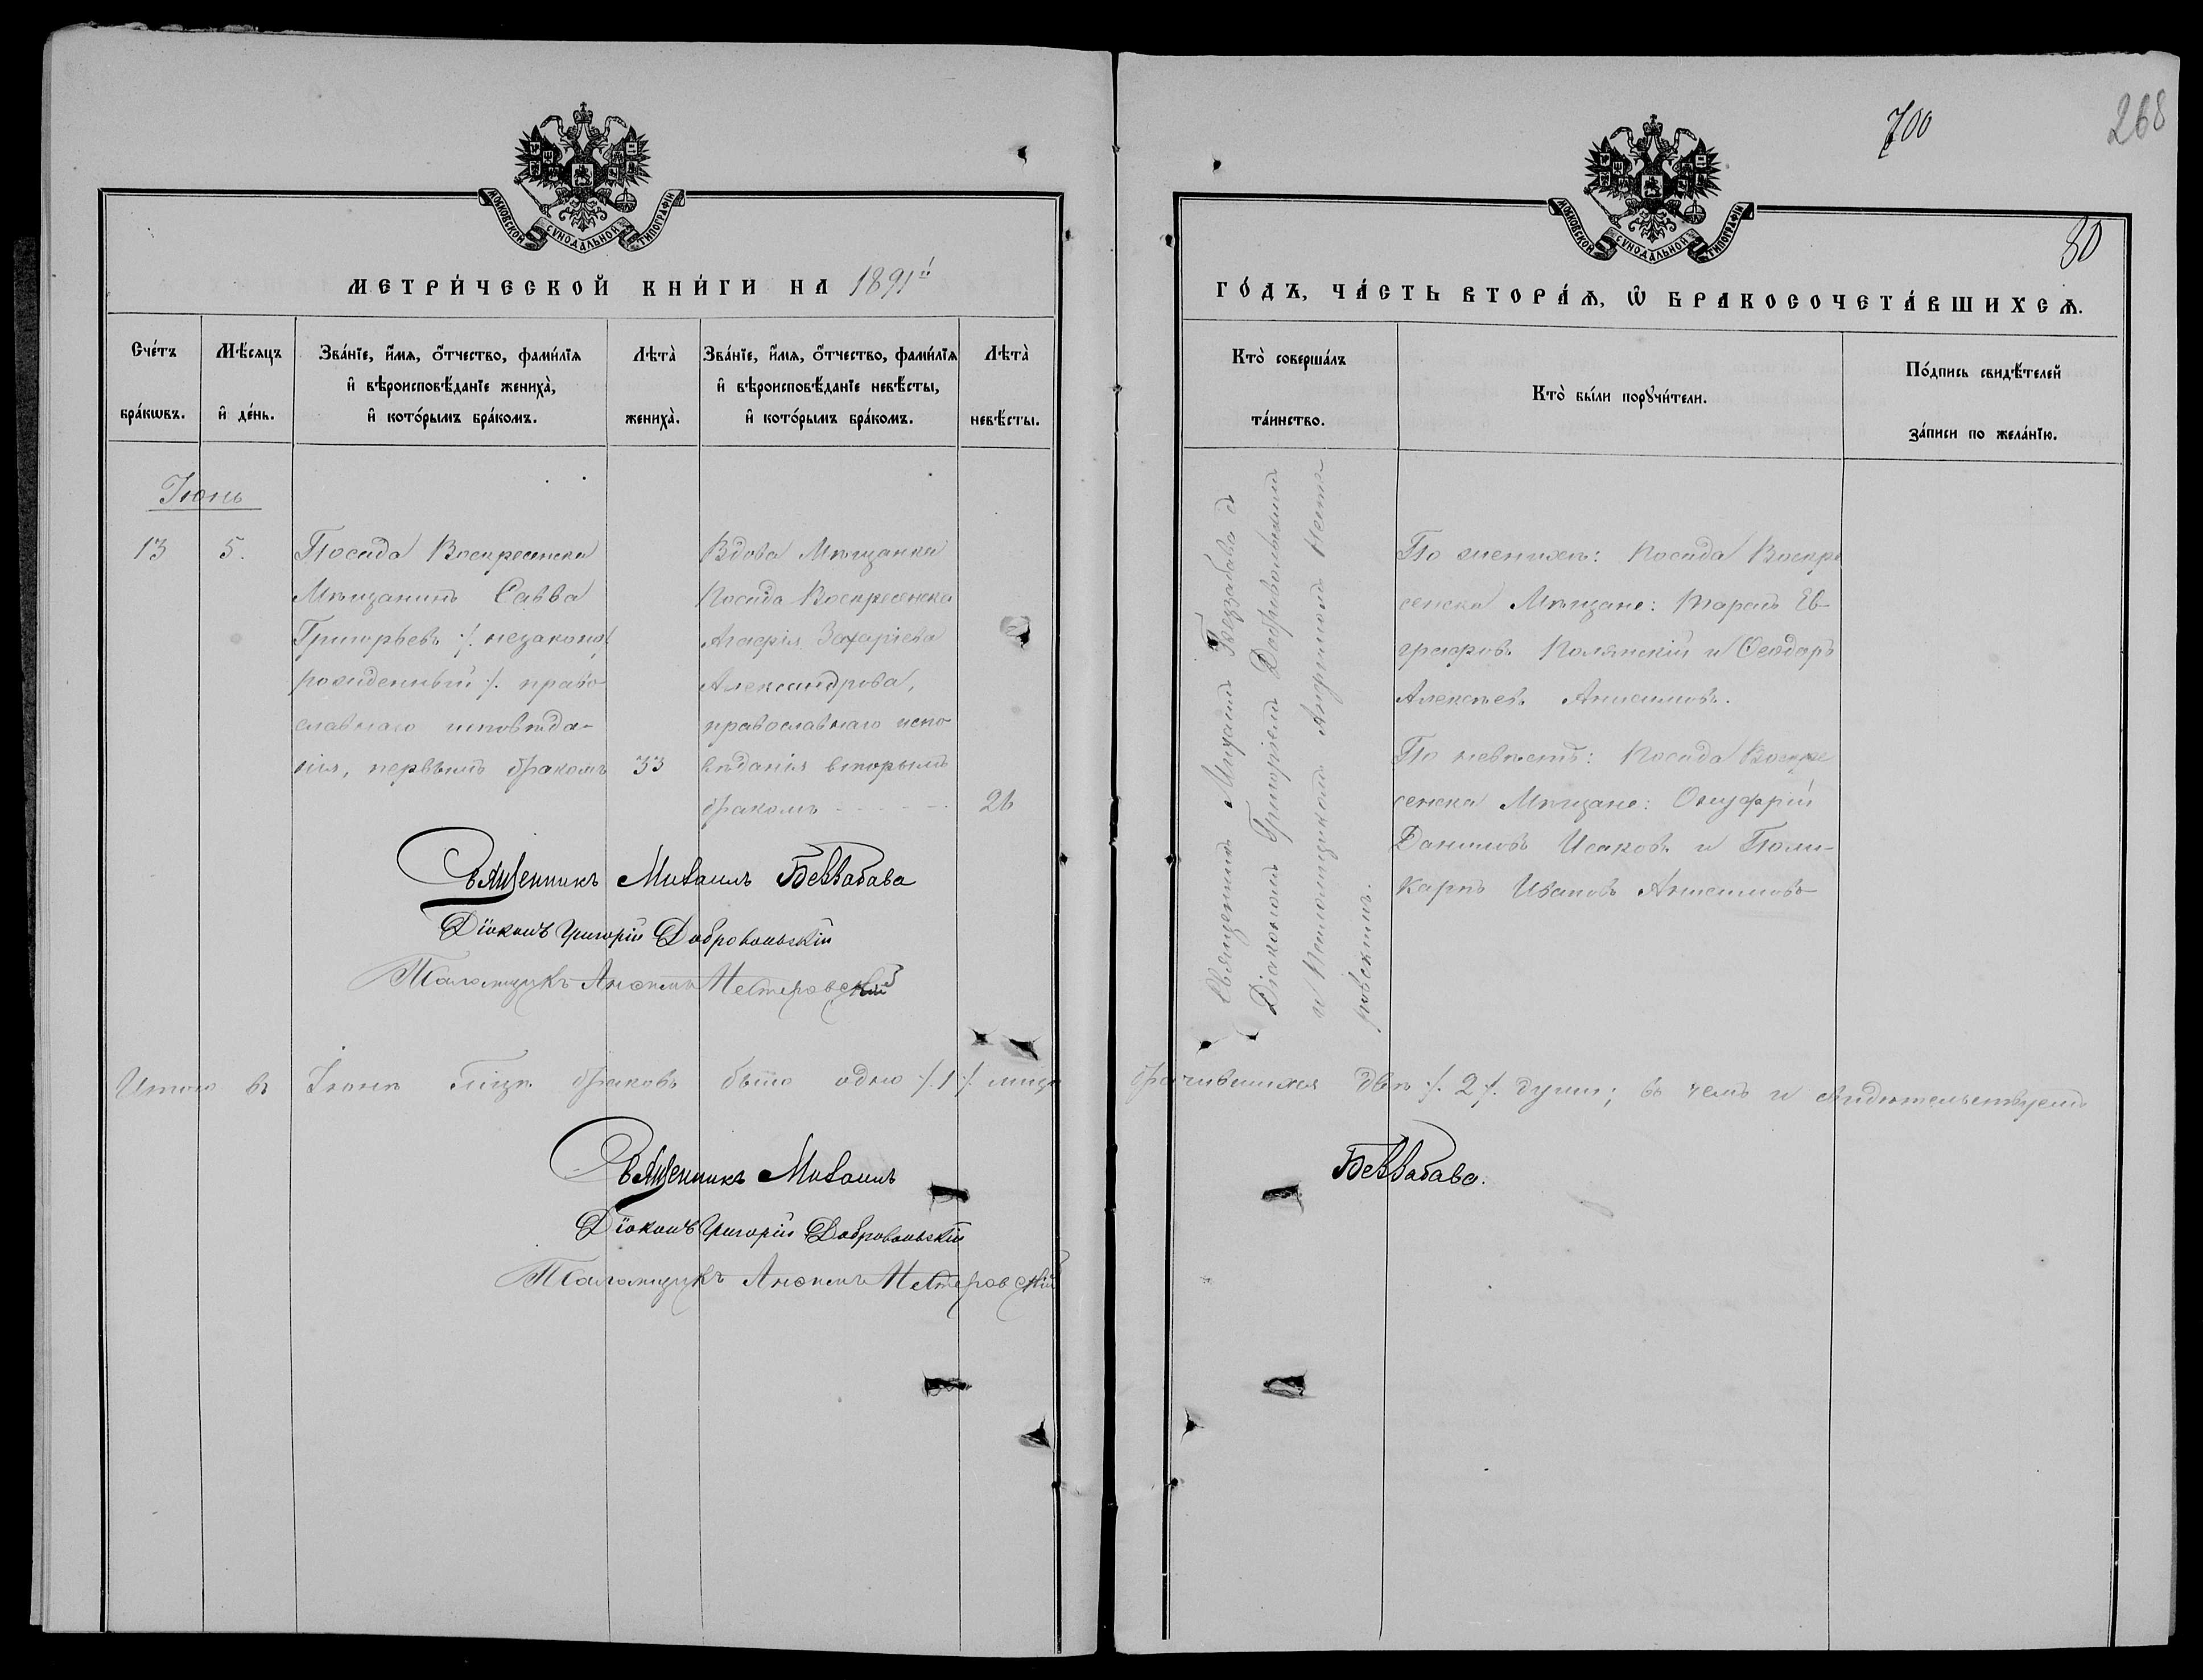 700
268
80
МОСКОВСКОЙ СѴНОДАЛЬНОЙ ТИПОГРАФІИ
МОСКОВСКОЙ СѴНОДАЛЬНОЙ ТИПОГРАФІИ
МЕТРИ́ЧЕСКОЙ КНИ́ГИ НА 1891й
ГО́ДЪ, ЧА́СТЬ ВТОРА́Ѧ, Ѡ҆ БРАКОСОЧЕТА́ВШИХСѦ.
Сче́тъ бра́кѡвъ.
Мѣ́сяцъ и҆ де́нь.
Зва́нїе, и҆́мѧ, ѻ҆́тчество, фами́лїѧ
и҆ вѣроисповѣ́данїе жениха̀,
и҆ кото́рымъ бра́комъ.
Лѣта̀ жениха̀.
Зва́нїе, и҆́мѧ, ѻ҆́тчество, фами́лїѧ
и҆ вѣроисповѣ́данїе невѣ́сты,
и҆ кото́рымъ бра́комъ.
Лѣта̀ невѣ́сты.
Кто̀ соверша́лъ та́инство.
Кто̀ бы́ли порꙋчи́тели.
По́дпись свидѣ́телей
за́писи по жела́нїю.
Іюнь
13
5.
Посада Воскресенска
Мѣщанинъ Савва
Григорьевъ ∕. незаконо
рожденный ∕. право-
славнаго исповѣда-
нія, первымъ бракомъ
33
Вдова Мѣщанка
Посада Воскресенска
Агафія Захаріева
Александрова,
православнаго испо-
вѣданія вторымъ
бракомъ - - - -
26
Священникъ Михаилъ Беззабава съ
Діакономъ Григоріемъ Добровольскимъ
и Псаломщикомъ Несте
ровскимъ.
По женихѣ: Посада Воскре
сенска Мѣщане: Тарасъ Ев-
графовъ Полянскій и Ѳеодоръ
Алексѣевъ Анисимовъ.
По невѣстѣ: Посада Воскре
сенска Мѣщане: Онуфрій
Даниловъ Исаковъ и Поли-
карпъ Ивановъ Анисимовъ
Священникъ Михаилъ Беззабава
Діаконъ Григорій Добровольскій
Псаломщикъ Нестеровскій
Итого въ Іюнѣ м̃цѣ браковъ было одно ∕. 1 ∕. лицъ брачившихся двѣ ∕. 2 ∕. души; въ чемъ и свидѣтельствуемъ
Священникъ Михаилъ Беззабава.
Діаконъ Григорій Добровольскій
Псаломщикъ Нестеровскій